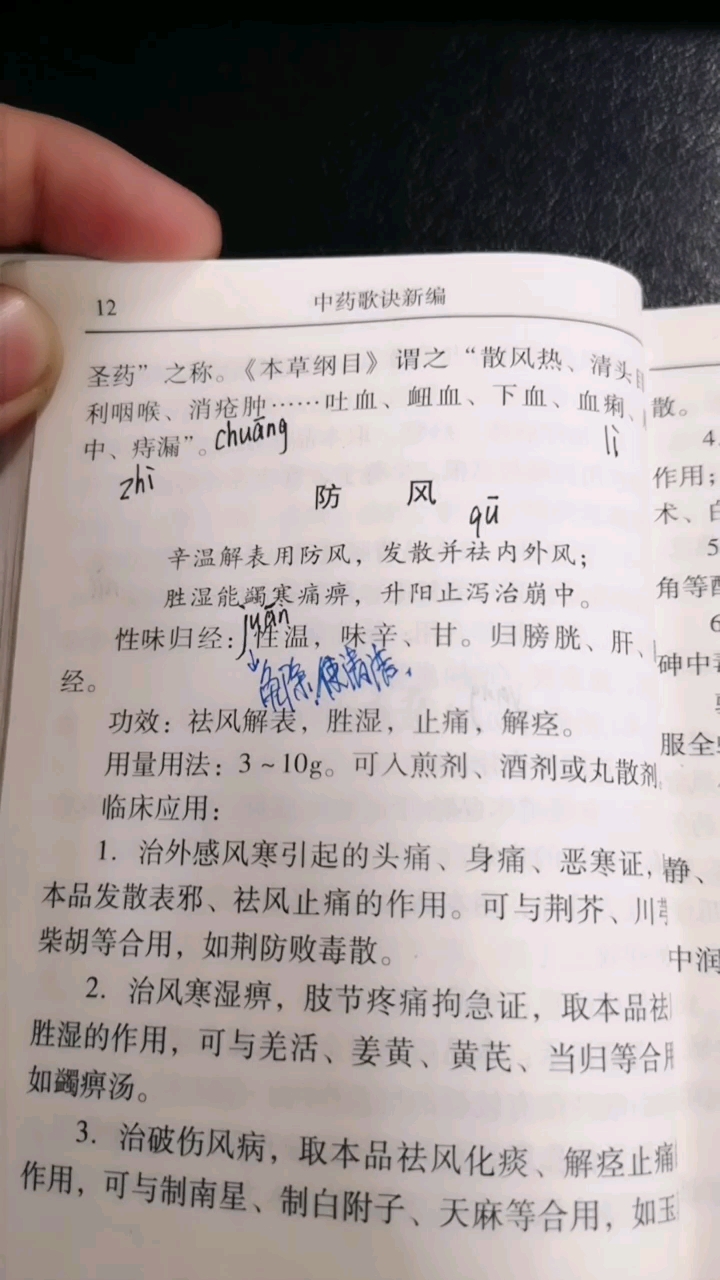 12
中药歌诀新编
圣药”之称。《本草纲目》谓之“散风热、清头目
利咽喉、消疮肿……吐血、衄血、下血、血痢、
chuāng
lì
中、痔漏”。
zhì
防 风
qū
辛温解表用防风，发散并祛内外风；
胜湿能蠲寒痛痹，升阳止泻治崩中。
juān
性味归经：性温，味辛、甘。归膀胱、肝、
免除，使清洁．
经。
功效：祛风解表，胜湿，止痛，解痉。
用量用法：3～10g。可入煎剂、酒剂或丸散剂
临床应用：
1. 治外感风寒引起的头痛、身痛、恶寒证，
本品发散表邪、祛风止痛的作用。可与荆芥、川芎
柴胡等合用，如荆防败毒散。
2. 治风寒湿痹，肢节疼痛拘急证，取本品祛
胜湿的作用，可与羌活、姜黄、黄芪、当归等合用
如蠲痹汤。
3. 治破伤风病，取本品祛风化痰、解痉止痛
作用，可与制南星、制白附子、天麻等合用，如玉
散。
4.
作用；
术、白
5
角等配
6
砷中毒
服全蝎
静、
中润